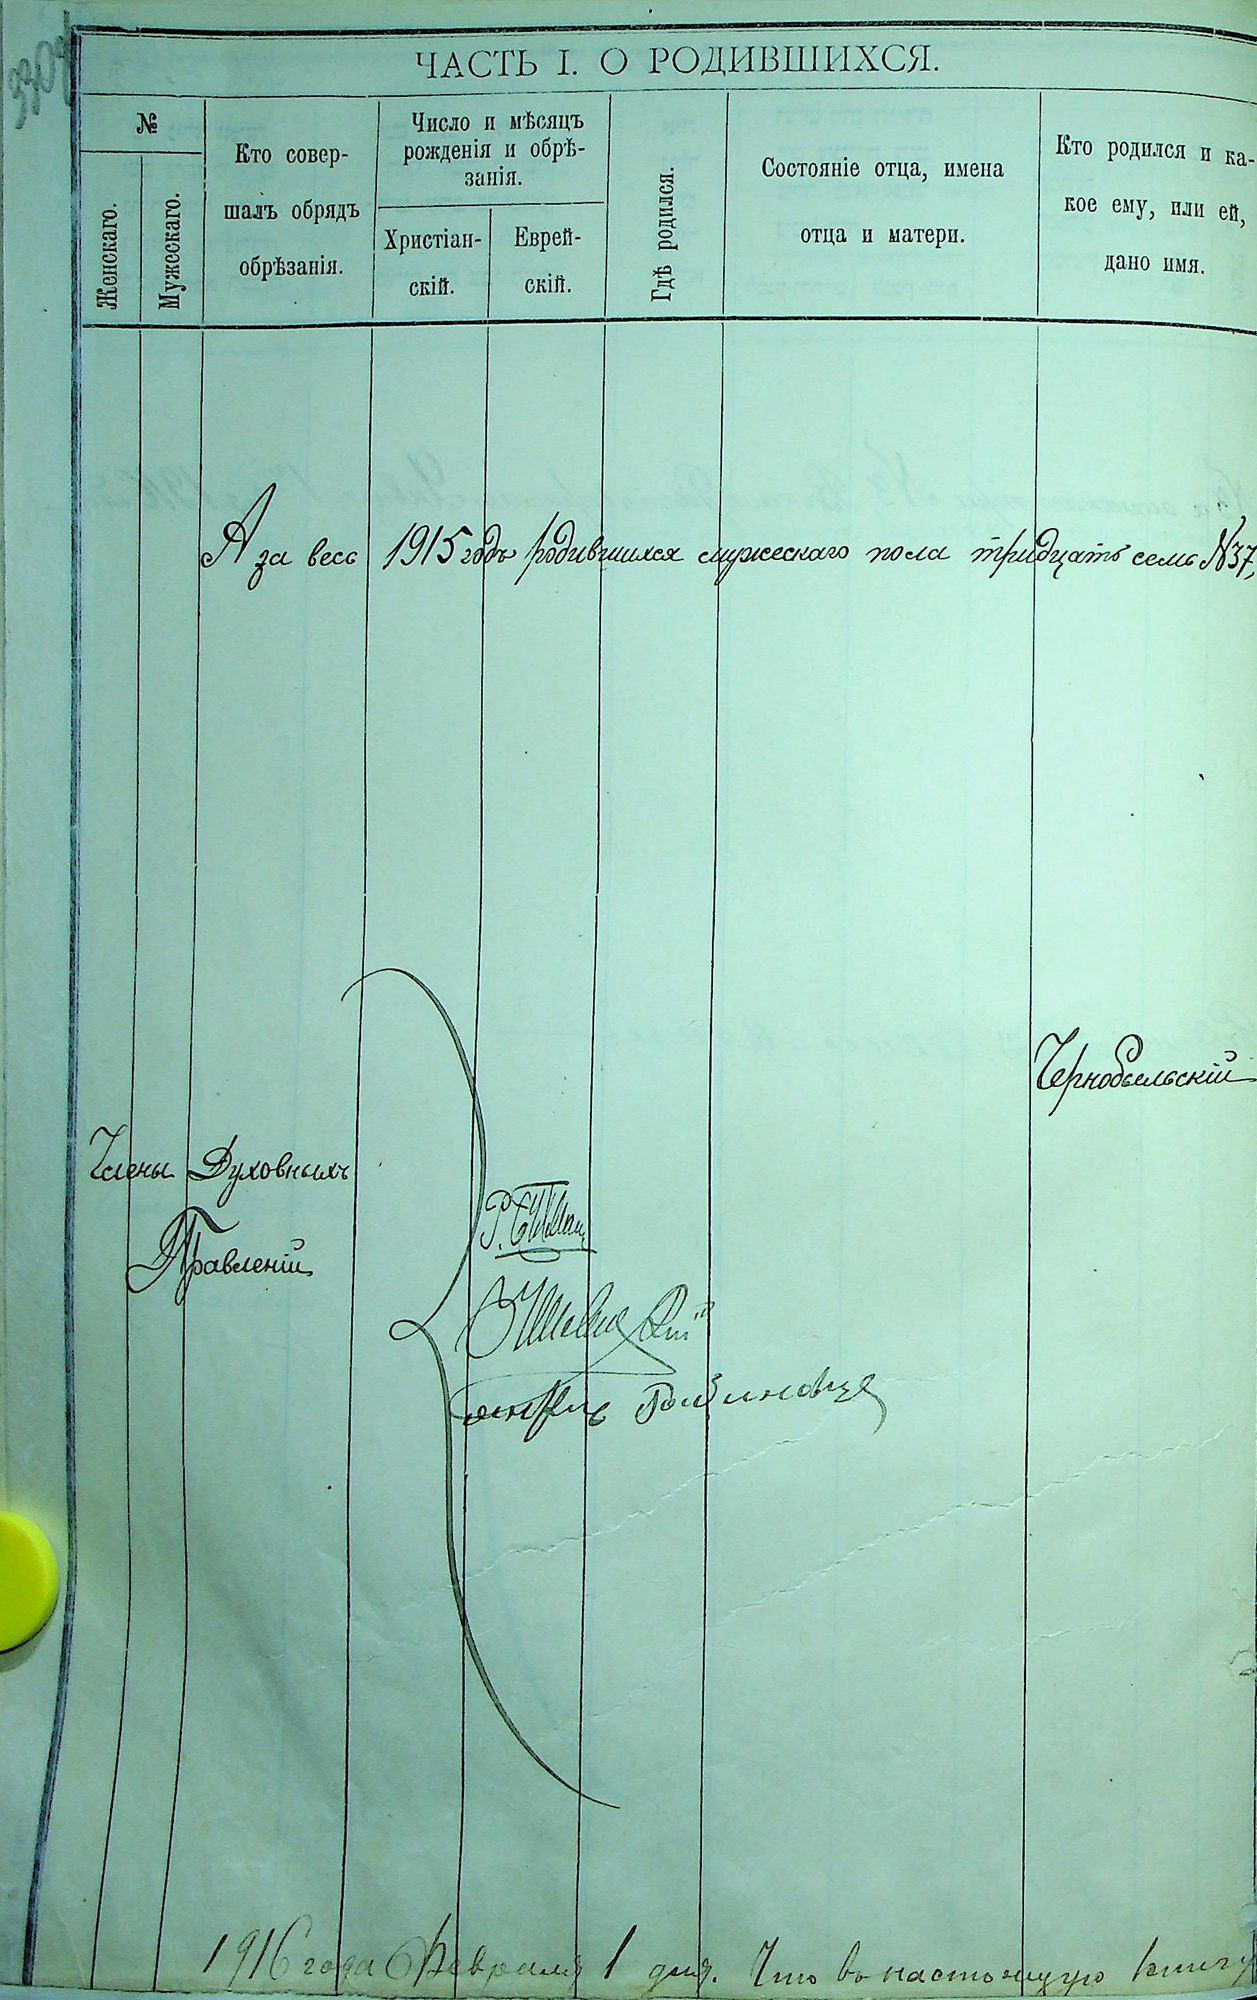 ЧАСТЬ I. О РОДИВШИХСЯ.
№
Женскаго.
Мужескаго.
Кто совер-
шалъ обрядъ
обрѣзанія.
Число и мѣсяцъ
рожденія и обрѣ-
занія.
Христіан-
скій.
Еврей-
скій.
Гдѣ родился.
Состояніе отца, имена
отца и матери.
Кто родился и ка-
кое ему, или ей,
дано имя.
А за весь 1915 годъ родившихся мужескаго пола тридцать семь №37,
Чернобыльскій
Члены Духовныхъ
Правленій
1916 года Февраля 1 дня. Что въ настоящую книгу